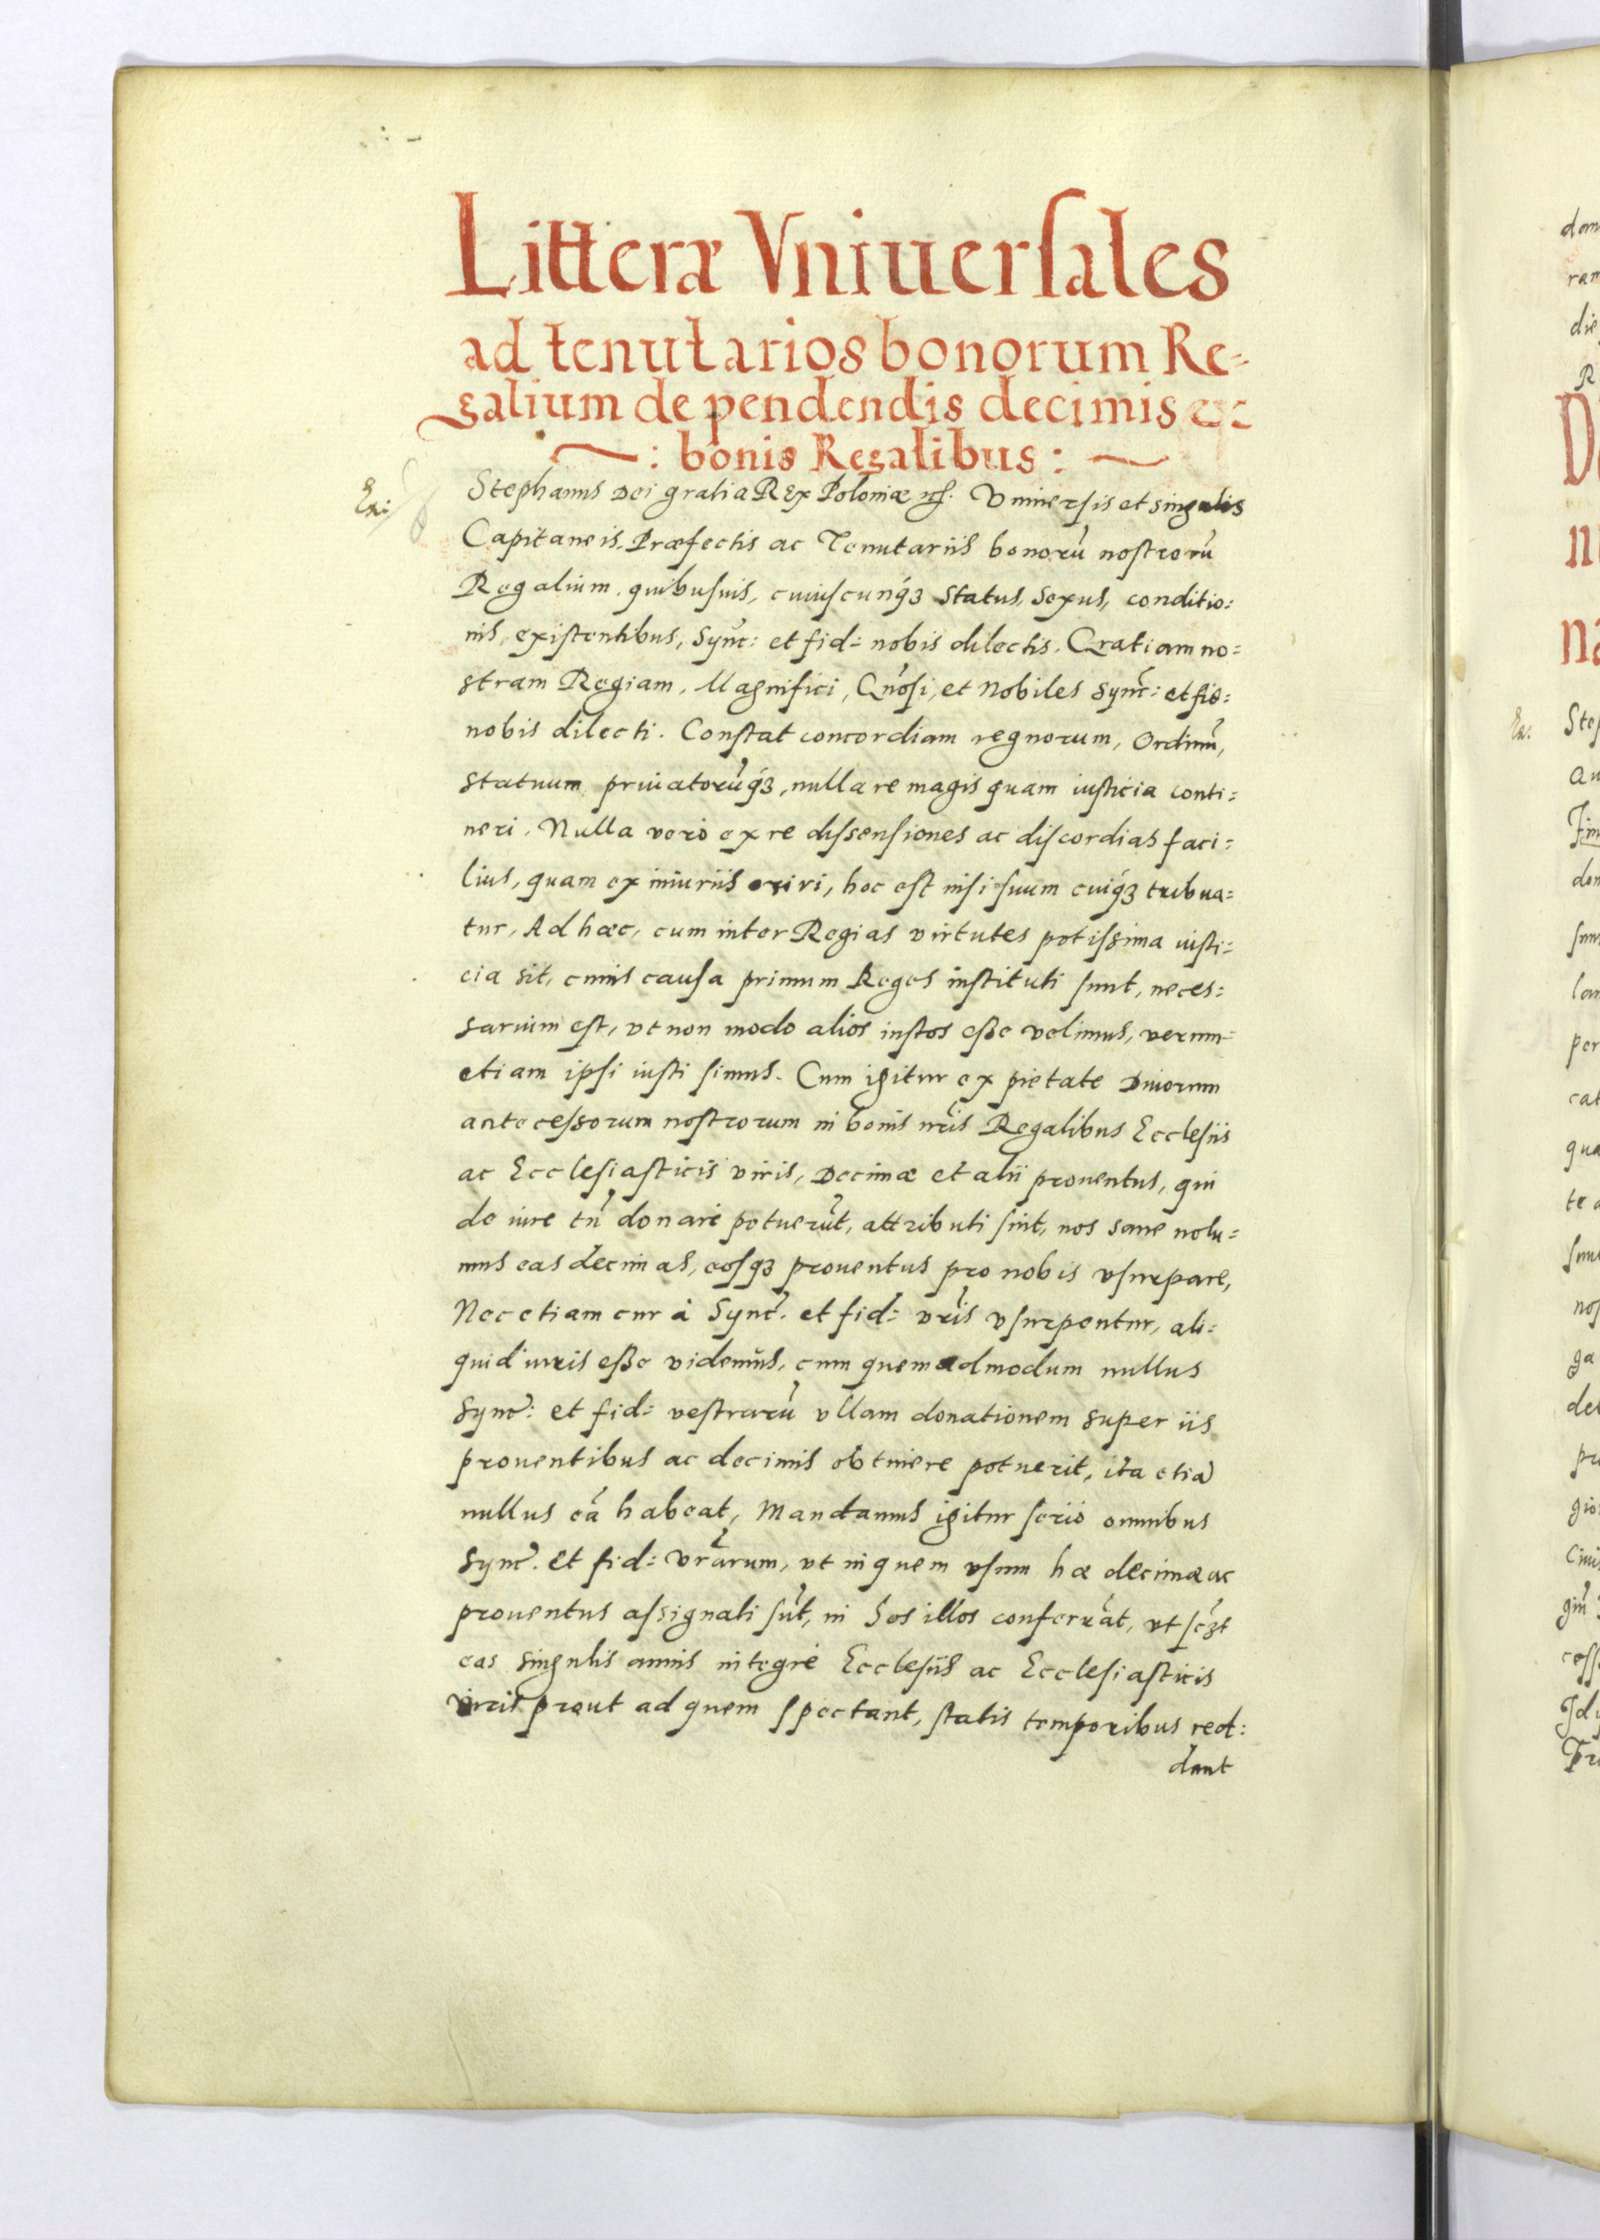 Litteræ Vniuersales
ad tenutarios bonorum Re-
galium de pendendis decimis ex
: bonis Regalibus :
Stephanus Dei gratia Rex Poloniæ Vniuersis et singulis
Capitaneis, Præfectis ac Tenutariis bonorũ nostrorũ
Regalium, quibusuis, cuiuscunq3 status, sexus, conditio:
nis, existentibus, Sync: et fid: nobis dilectis. Gratiam no:
stram Regiam. Magnifici, Gñosi, et Nobiles Sync: et fid:
nobis dilecti. Constat concordiam regnorum, Ordinũ,
statuum priuatorũq3, nulla re magis quam iusticia conti:
neri. Nulla vero ex re dissensiones ac discordias faci:
lius, quam ex iniuriis oriri, hoc est nisi suum cuiq3 tribua:
tur, Ad hæc, cum inter Regias virtutes potissima iusti:
cia sit, cuius causa primum Reges instituti sunt, neces:
sarium est, vt non modo alios iustos esse velimus, verum
etiam ipsi iusti simus. Cum igitur ex pietate Diuorum
antecessorum nostrorum in bonis nr̃is Regalibus Ecclesiis
ac Ecclesiasticis viris, Decimæ et alii prouentus, qui
de iure tñ donari potuerũt, attributi sint, nos sane nolu:
mus eas decimas, eosq3 prouentus pro nobis vsurpare,
Nec etiam cur à Sync. et fid: vr̃is vsurpentur, ali:
quid iuris esse videmus, cum quemadmodum nullus
Sync: et fid: vestrarũ vllam donationem super iis
prouentibus ac decimis obtinere potuerit, ita etiã
nullus eã habeat, Mandamus igitur serio omnibus
Sync. et fid: vr̃arum, vt in quem vsum hæ decimæ ac
prouentus assignati sũt, in hos illos conferãt, vt scz̃t
eas singulis annis integre Ecclesiis ac Ecclesiasticis
viris prout ad quem spectant, statis temporibus red:
dant
Ste